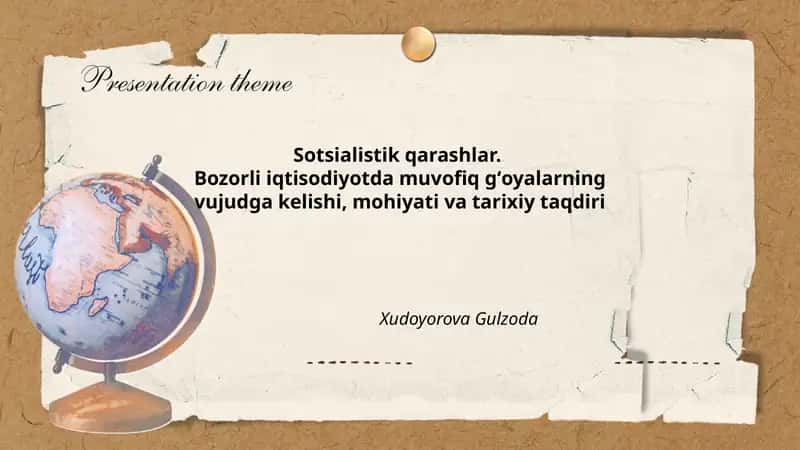 Presentation theme
Sotsialistik qarashlar.
Bozorli iqtisodiyotda muvofiq gʻoyalarning
vujudga kelishi, mohiyati va tarixiy taqdiri
Xudoyorova Gulzoda